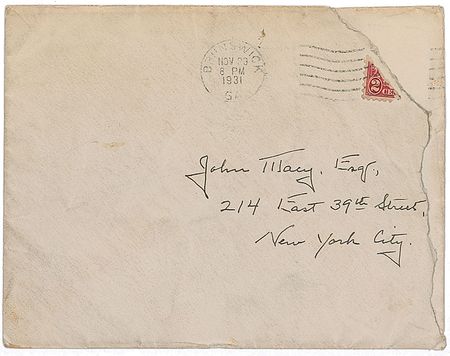 BRUNSWICK
NOV 23
8 PM
1931
GA
2
John Macy, Esq.,
214 East 39th Street,
New York City.